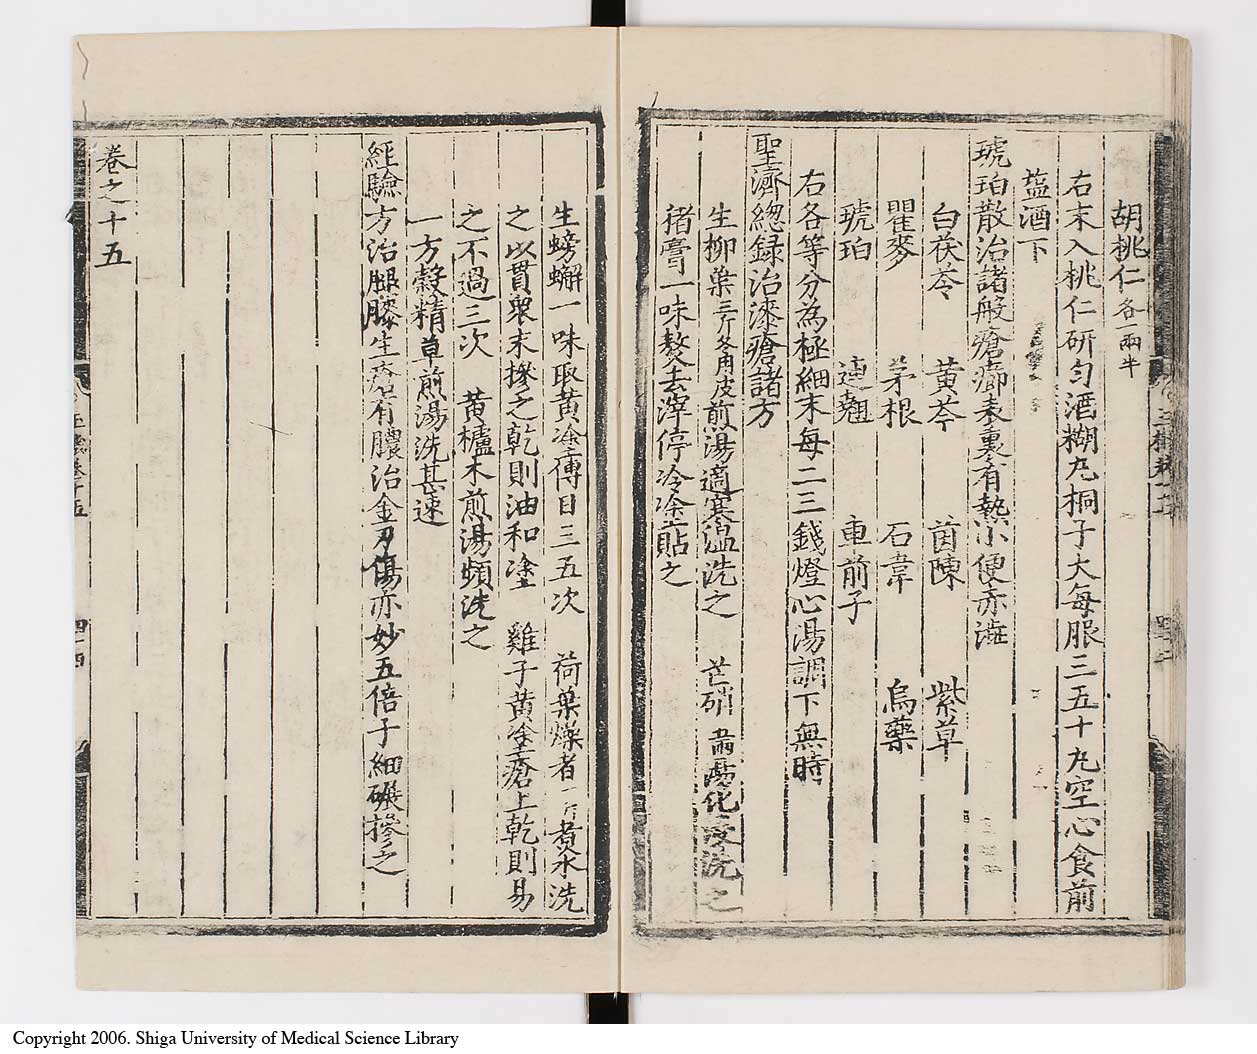 胡桃仁各一兩半
右末入桃仁研勻酒糊丸桐子大每服三五十丸空心食前
塩酒下
琥珀散治諸般瘡癤表裏有熱小便赤澁
白茯苓 黃芩 茵陳 紫草
瞿麥 茅根 石韋 烏藥
琥珀 連翹 車前子
右各等分為極細末每二三錢燈心湯調下無時
聖濟總録治漆瘡諸方
生柳葉三斤冬用皮煎湯適寒溫洗之 芒硝 湯化洗之
褚膏一味熬去滓停冷塗貼之
生螃蠏一味取黃塗傅日三五次 荷葉燥者一斤煮水洗
之以貫衆末摻之乾則油和塗 雞子黃塗瘡上乾則易
之不過三次 黃櫨木煎湯頻洗之
一方穀精草煎湯洗甚速
經驗方治腿膝生瘡有膿治金刃傷亦妙五倍子細碾摻之
卷之十五